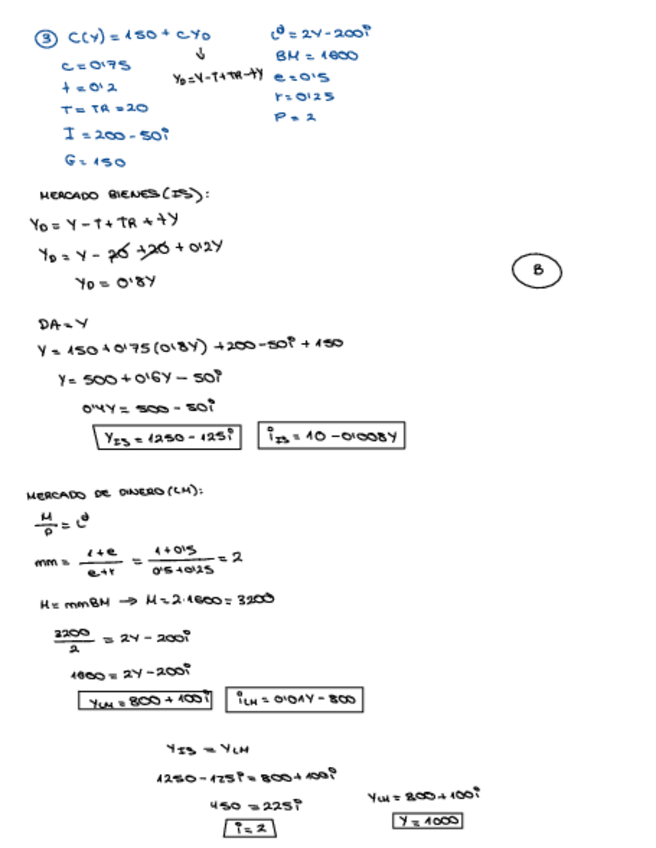 ③ C(Y) = 150 + CYD
↓
YD = Y - T + TR - tY
C = 0'75
t = 0'2
T = TR = 20
I = 200 - 50i
G = 150
Lᵈ = 2Y - 200i
BM = 1600
e = 0'5
r = 0'25
P = 2
MERCADO BIENES (IS):
YD = Y - T + TR + tY
YD = Y - 20 + 20 + 0'2Y
YD = 0'8Y
B
DA = Y
Y = 150 + 0'75 (0'8Y) + 200 - 50i + 150
Y = 500 + 0'6Y - 50i
0'4Y = 500 - 50i
YIS = 1250 - 125i
iIS = 10 - 0'008Y
MERCADO DE DINERO (LM):
M/P = Lᵈ
mm = (1 + e)/(e + r) = (1 + 0'5)/(0'5 + 0'25) = 2
M = mmBM → M = 2·1600 = 3200
3200/2 = 2Y - 200i
1600 = 2Y - 200i
YLM = 800 + 100i
iLM = 0'01Y - 800
YIS = YLM
1250 - 125i = 800 + 100i
450 = 225i
i = 2
YLM = 800 + 100i
Y = 1000